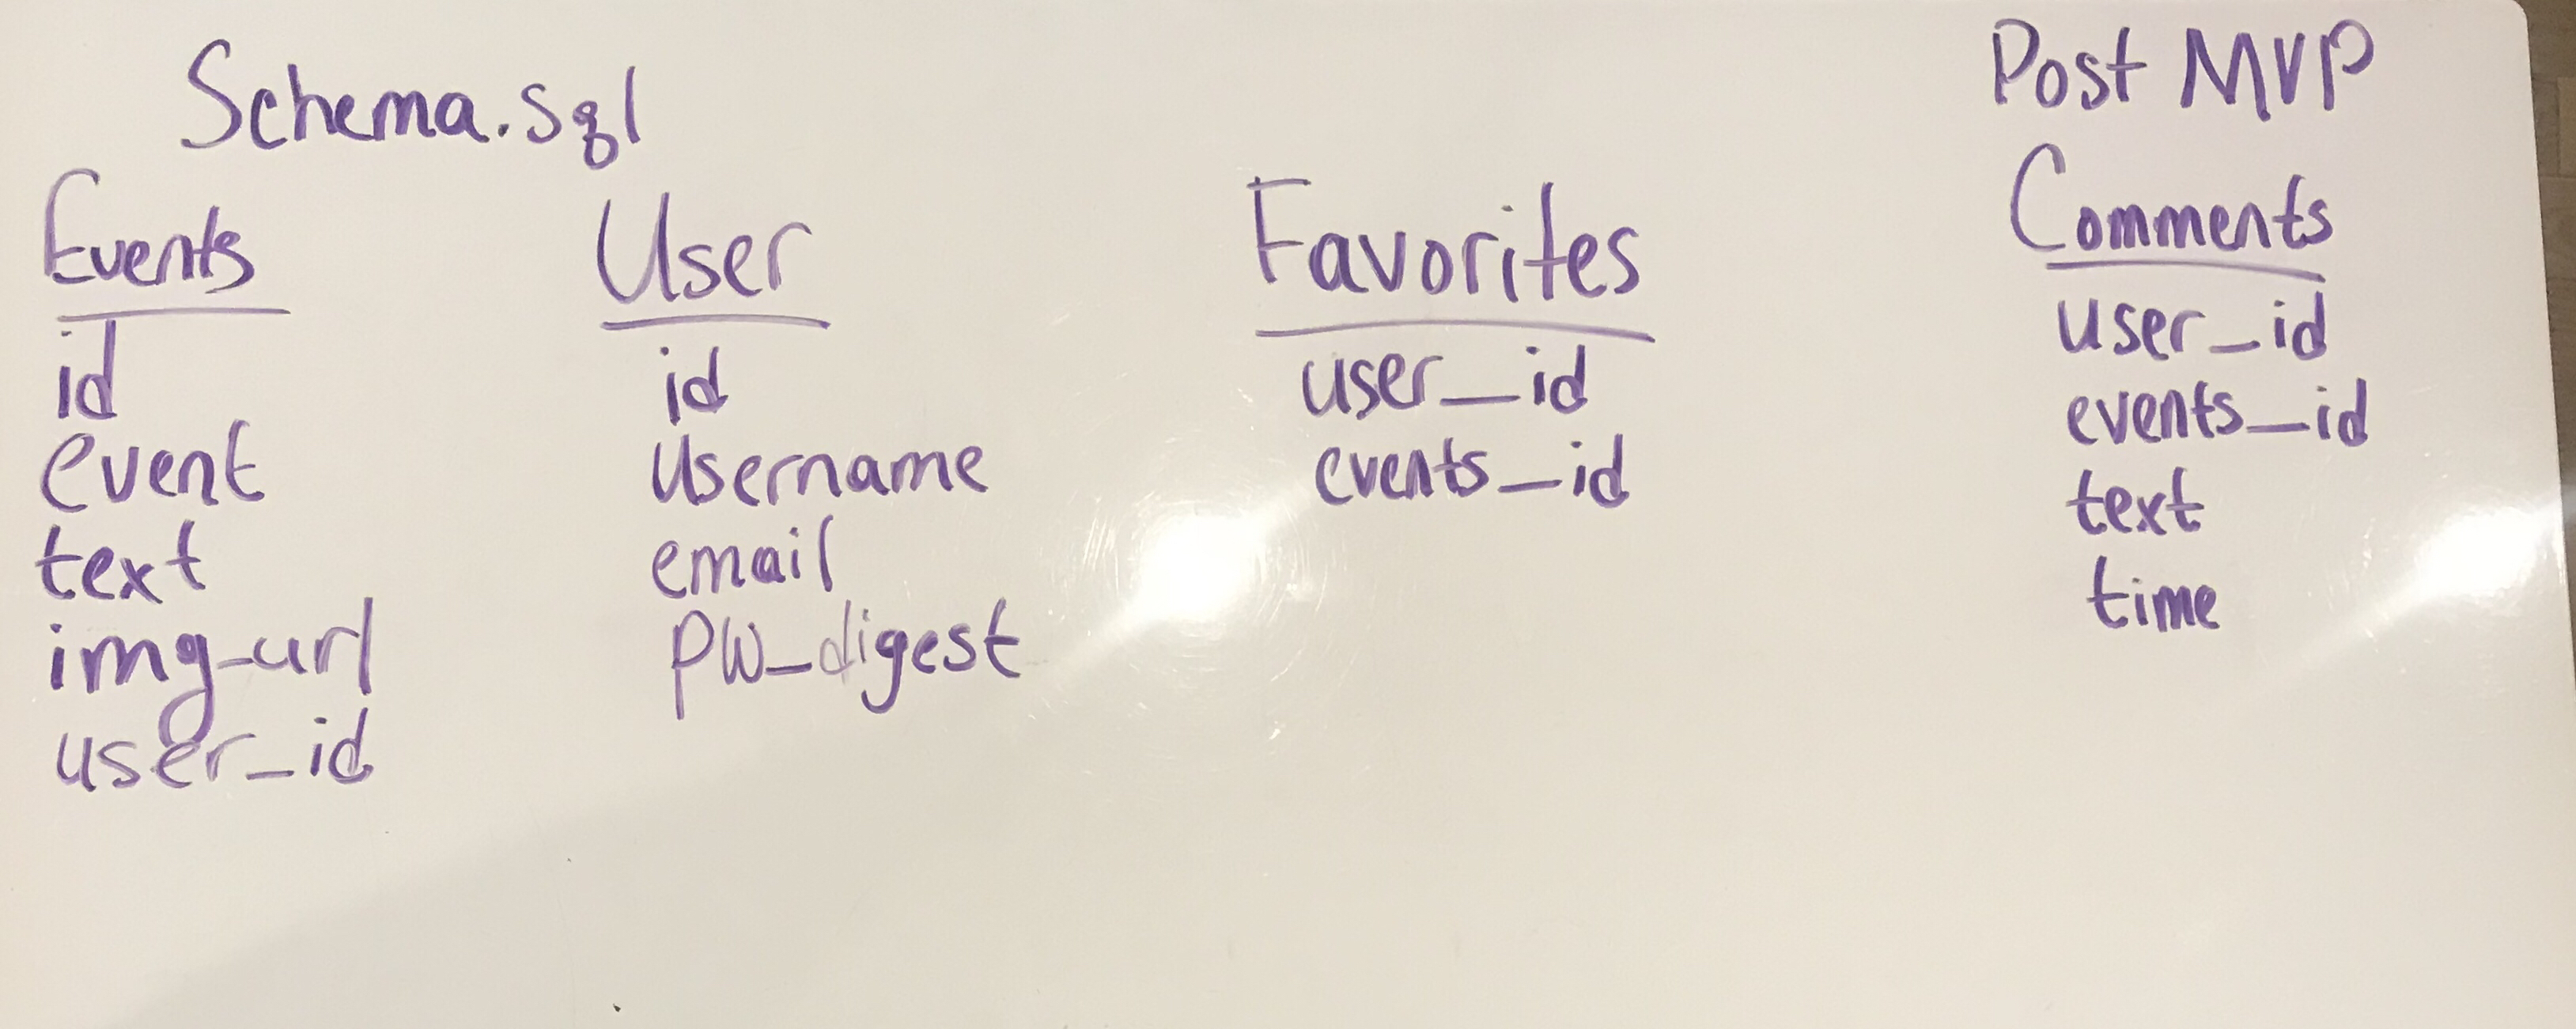 Schema.sql
Events
id
event
text
img_url
user_id
User
id
username
email
pw_digest
Favorites
user_id
events_id
Post MVP
Comments
user_id
events_id
text
time